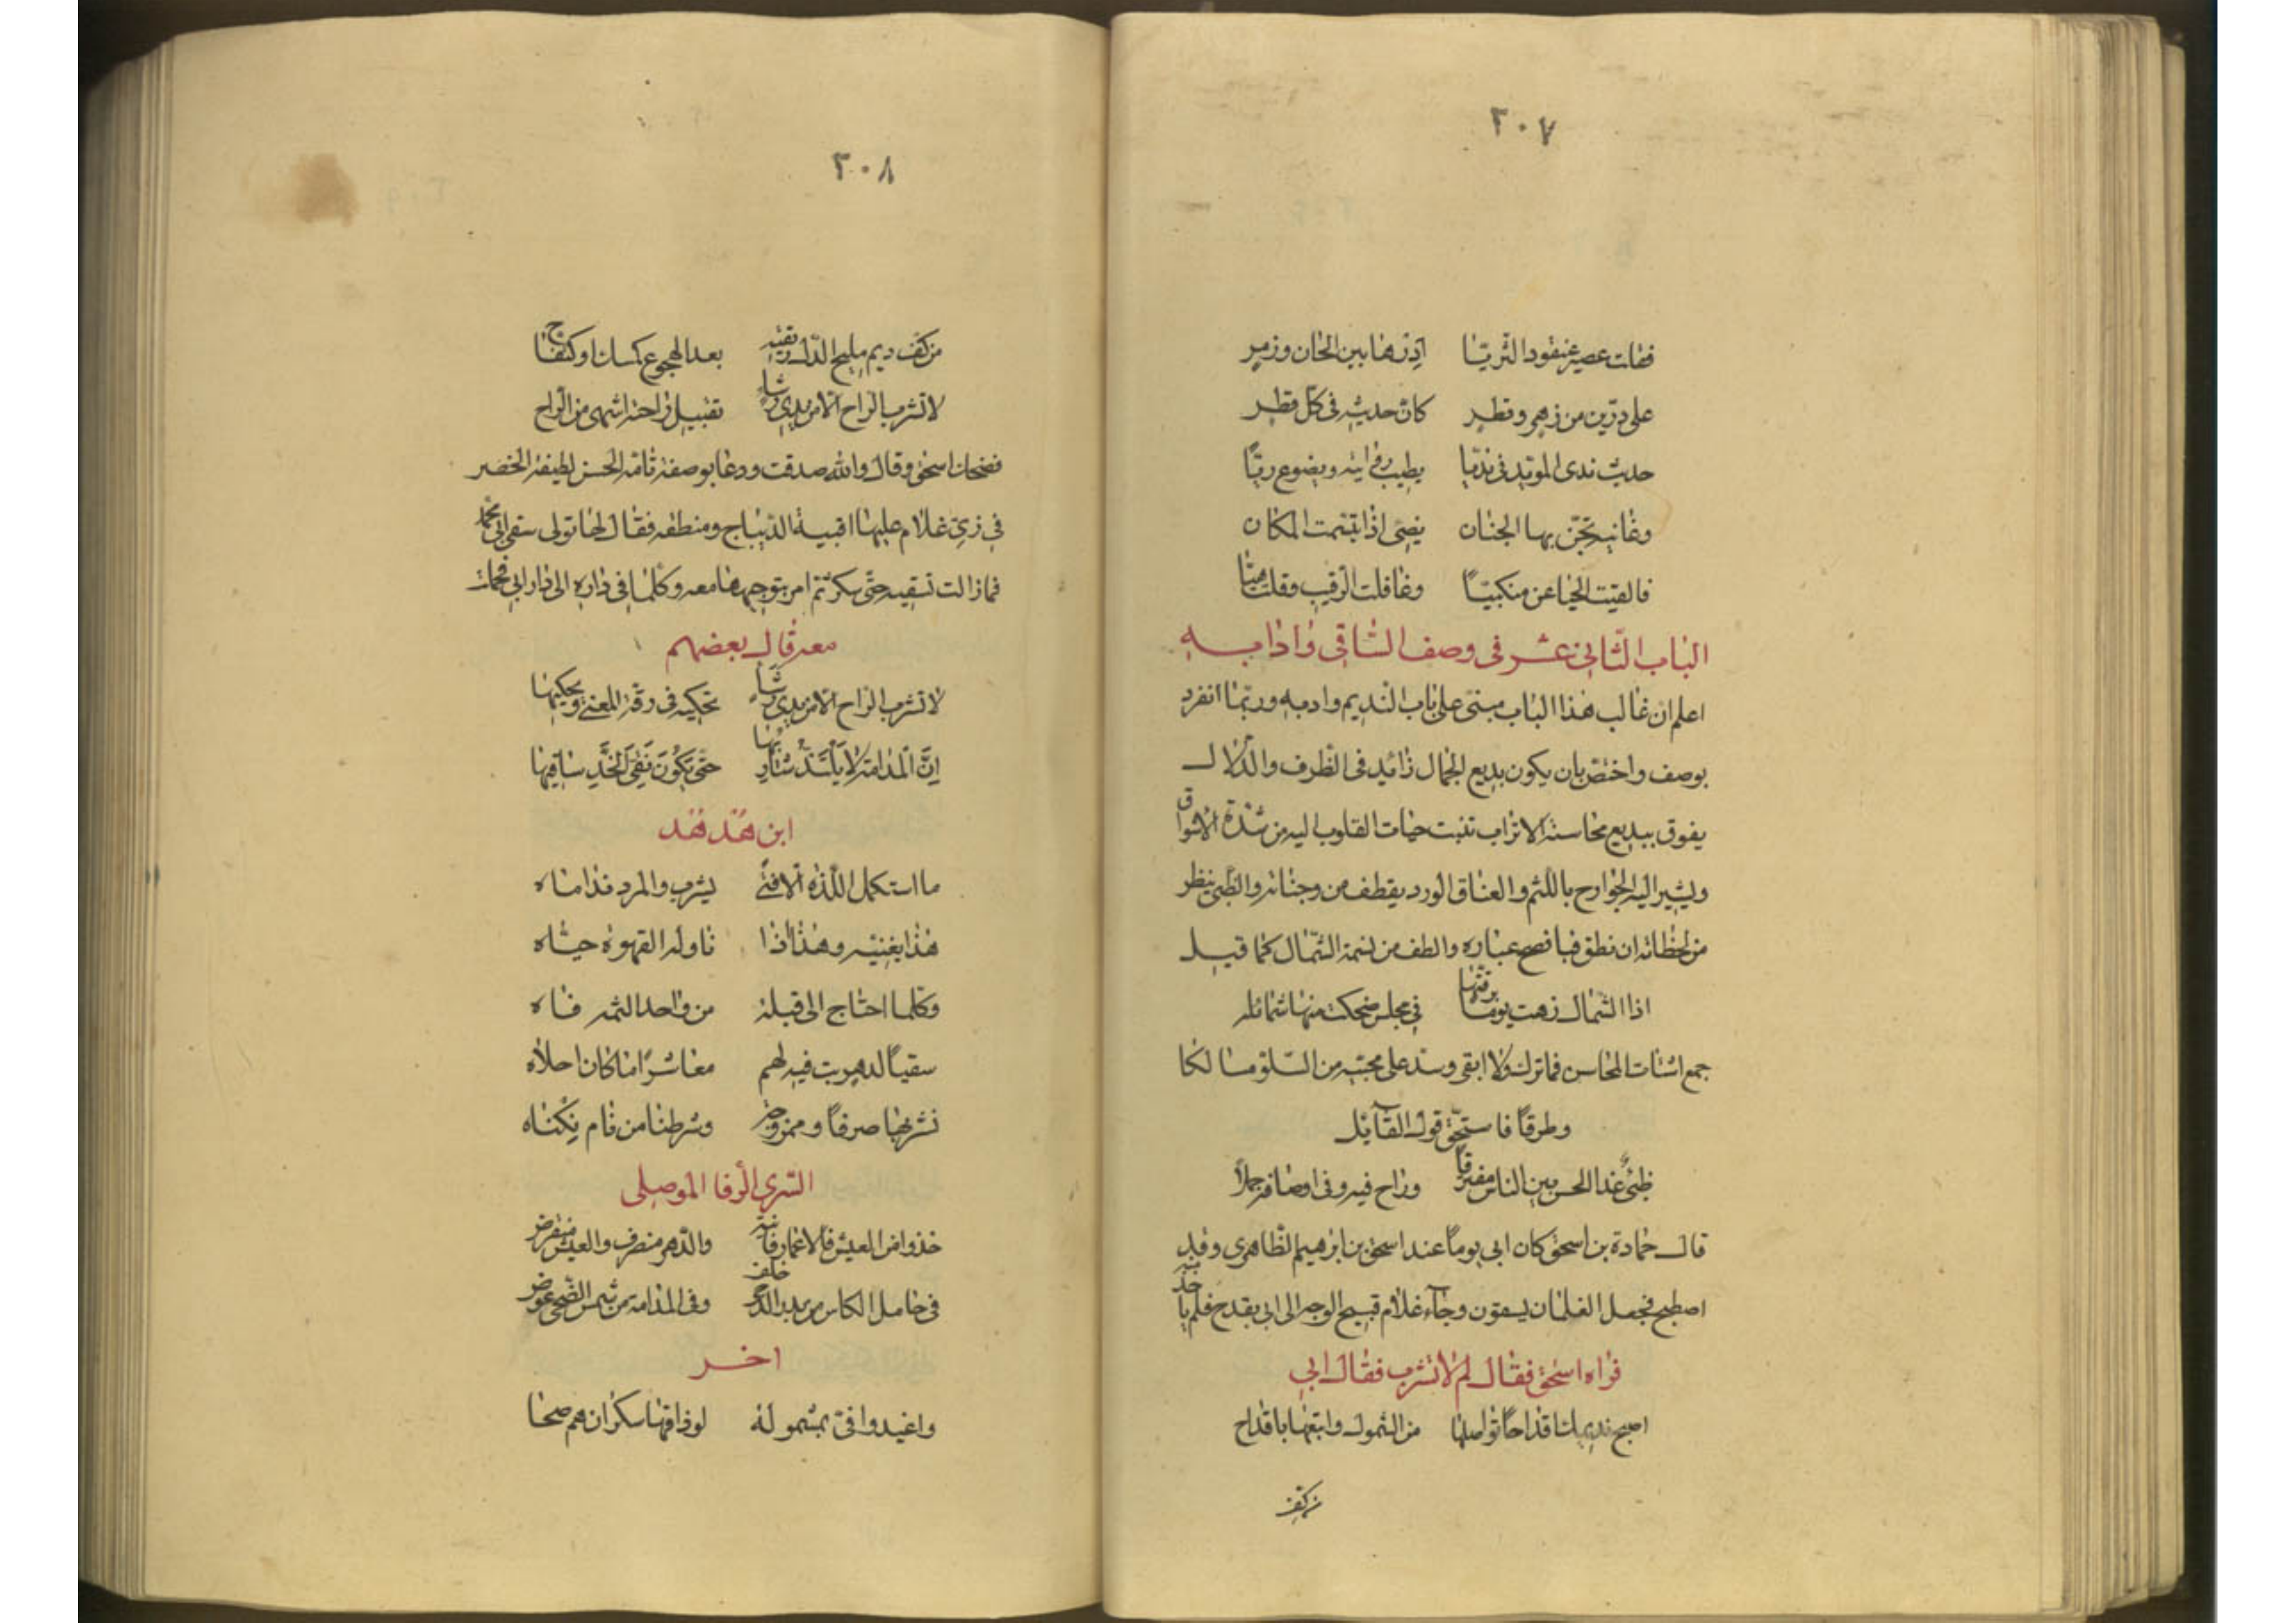 ٢٠٧
فقات عصير عنقود الثريّا ادِرْها بين الحان وزمرٍ
على درّين من زهرٍ وقطرٍ كانّ حديثه في كلّ قطرٍ
حديث ندى المؤيد في نديّا يطيب رواية ويضوع ريّا
وغانية تجنّ بها الجنان يضئ اذا تبسّمت المكان
فالقيت الحيا عن منكبيّا وغافلت الرقيب وقلت هيّا
الباب الثاني عشر في وصف الساقي وادابه
اعلم ان غالب هذا الباب مبنى على باب النديم وادبه وربّما انفرد
بوصف واختصّ بان يكون بديع الجمال زائد في الظرف والدّلال
يفوق ببديع محاسنه الاتراب تنبت حبّات القلوب اليه من شدّة الاشواق
ويشير اليه الجوارح باللثم والعناق الورد يقطف من وجناته والظّبى ينظر
من لحظاته ان نطق فبافصح عباره والطف من نسمة الشّمال كما قيل
اذا الشمال زهت يوما برقتها في مجلس ضحكت منها شمائله
جمع اشتات المحاسن فما ترك ولا ابقى وسدّ على محبّيه من السّلو مسالكا
وطرقاً فاستحقّ قول القآئل
ظبيٌ غدا الحسن بين الناس مفترقاً وراح فيه وفي اوصافه جملاً
قال حمادة بن اسحق كان ابي يوماً عند اسحق بن ابرهيم الظاهرى وقد
اصطبح فجعل الغلمان يسقون وجآء غلام قبيح الوجه الى ابى بقدح فلم ياخذ
فراه اسحق فقال لم لا تشرب فقال ابي
اصبح نديمك اقداحاً تواصلها من الشمول واتبعها باقداح
من كف
٢٠٨
من كف ريم مليح الدّل ريقته بعد الهجوع كمسك او كتفّاح
لا تشرب الراح الّا من يدى رشاءٍ تقبيل راحته اشهى من الراح
فضحك اسحق وقال والله صدقت ودعا بوصفة تامّة الحسن لطيفة الخصر
في زيّ غلام عليها اقبية الديباج ومنطقة فقال لها تولى سقى ابى محمد
فما زالت تسقيه حتّى سكر ثم امر بتوجيهها معه وكلما في داره الى دار ابي فحملت
معه قال بعضهم
لا تشرب الراح الّا من يدى رشاءٍ تحكيه في رقّة المعنى ويحكيها
اِنَّ الْمدامة لا يَلْتَذُّ شاربها حتّى يَكُوْنَ نَقىَّ الْخَدِّ ساقيها
ابن هُدهُد
ما استكمل اللّذه الّا فتًى يشرب والمرد نداماه
هذا يغنيه وهذا اذا ناوله القهوة حيّاه
وكلما احتاج الى قبلة من واحد الثمه فاه
سقياً لدهرٍ بت فيه لهم معاشراً ما كان احلاه
نشربها صرفاً وممزوجة وشرطنا من نام نكناه
السّري الرّفا الموصلى
خذوا من العيش فالاعمار فانية والدّهر منصرف والعيش منقرض
في حامل الكاس من بدر الدّجى خلف وفي المدامة من شمس الضّحى عوض
اخر
واغيد وافى بمشمولة لو ذاقها سكران هم صحا